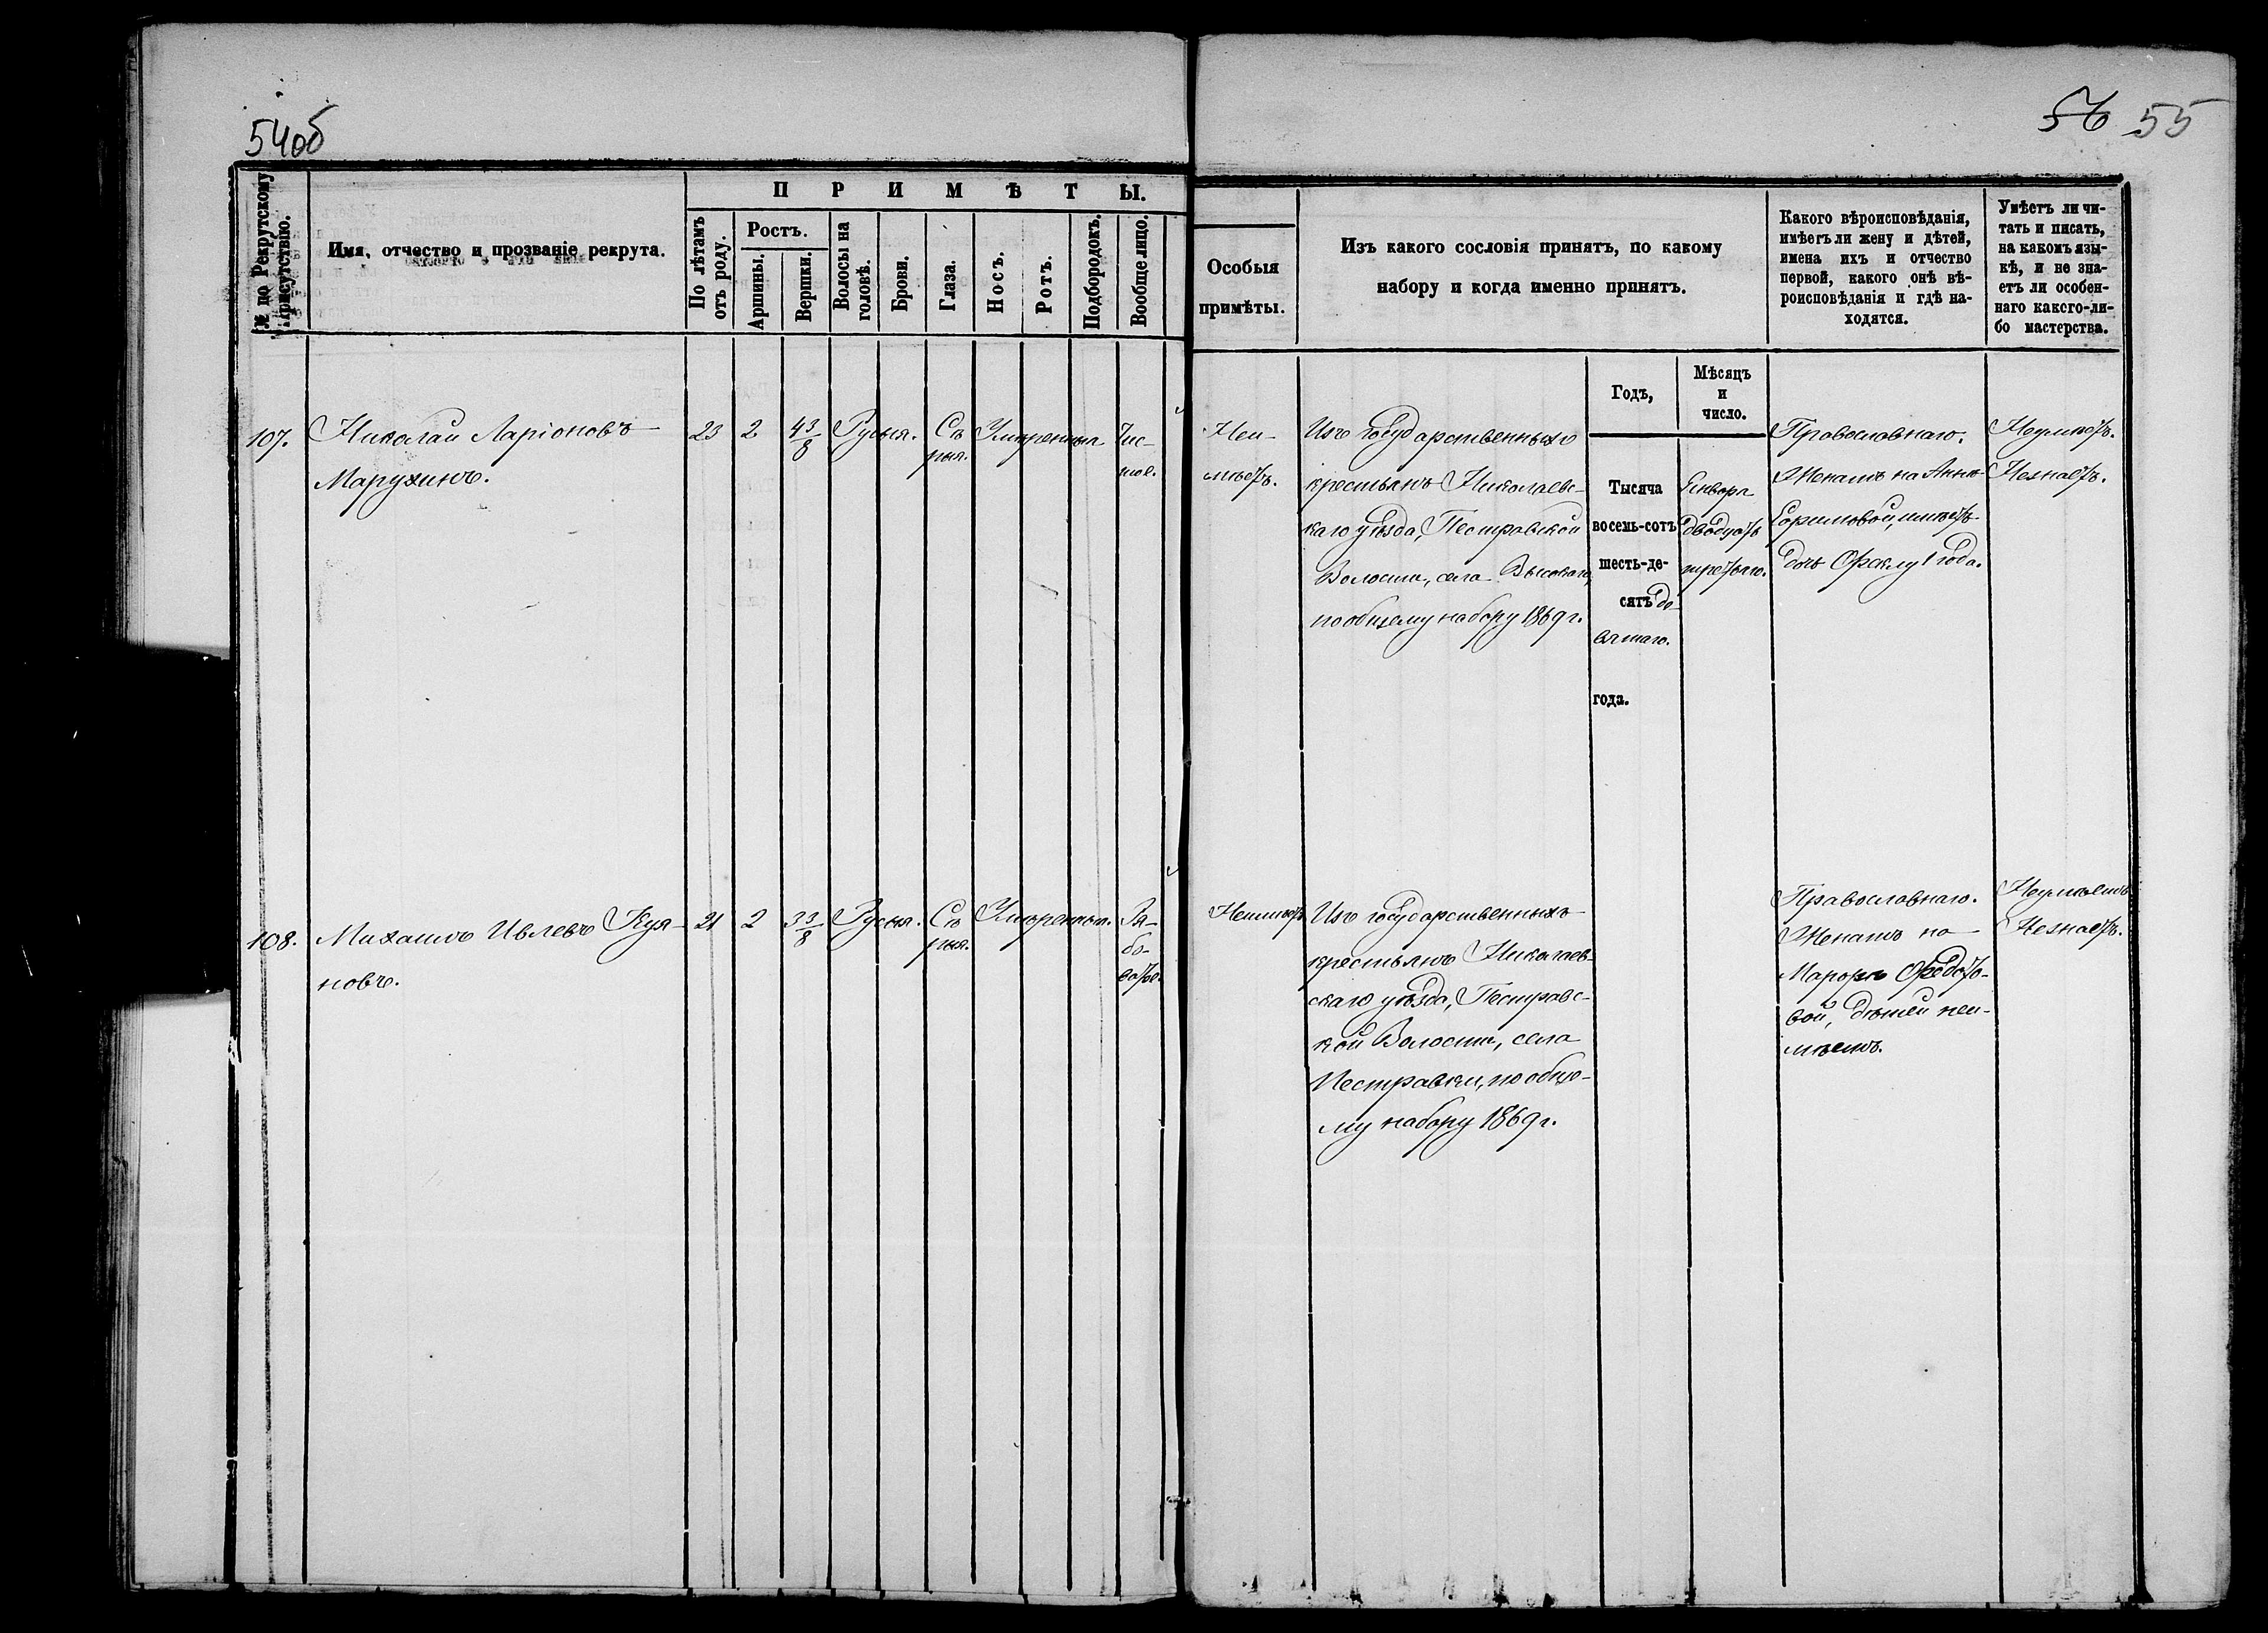 54об
56 55
№ по Рекрутскому присутствію.
Имя, отчество и прозваніе рекрута.
ПРИМѢТЫ.
По лѣтамъ отъ роду.
Ростъ.
Аршины.
Вершки.
Волосы на головѣ.
Брови.
Глаза.
Носъ.
Ротъ.
Подбородокъ.
Вообще лицо.
Особыя
примѣты.
Изъ какого сословія принятъ, по какому
набору и когда именно принятъ.
Какого вѣроисповѣданія,
имѣетъ ли жену и дѣтей,
имена ихъ и отчество
первой, какого онѣ вѣ-
роисповѣданія и гдѣ на-
ходятся.
Умѣетъ ли чи-
тать и писать,
на какомъ язы-
кѣ, и не зна-
етъ ли особен-
наго какого-ли-
бо мастерства.
Годъ,
Мѣсяцъ
и
число.
107.
Николай Ларіоновъ
Марухинъ.
23
2
4 3/8
Русыя.
Сѣ
рыя.
Умѣренныя
Чис-
тое.
Неи-
мѣетъ.
Изъ государственныхъ
крестьянъ Николаевс-
каго уѣзда, Пестравской
Волости, села Высокаго,
по общему набору 1869 г.
Тысяча
восемь-сотъ
шесть-де-
сятъ де-
вятаго.
года.
Генваря
двадцать
третьяго.
Православнаго.
Женатъ на Аннѣ
имѣетъ
дочь Феклу 1 года.
Неумѣетъ.
Незнаетъ.
108.
Михаилъ Ивлевъ Куя-
новъ.
21
2
3 3/8
Русыя.
Сѣ
рыя.
Умѣренныя.
Ря-
бо-
ватое.
Неимѣетъ
Изъ государственныхъ
крестьянъ Николаев-
скаго уѣзда, Пестравс-
кой Волости, села
Пестравки, по обще-
му набору 1869 г.
Православнаго.
Женатъ на
Марфѣ Федото-
вой, дѣтей неи-
мѣетъ.
Неумѣетъ
Незнаетъ.